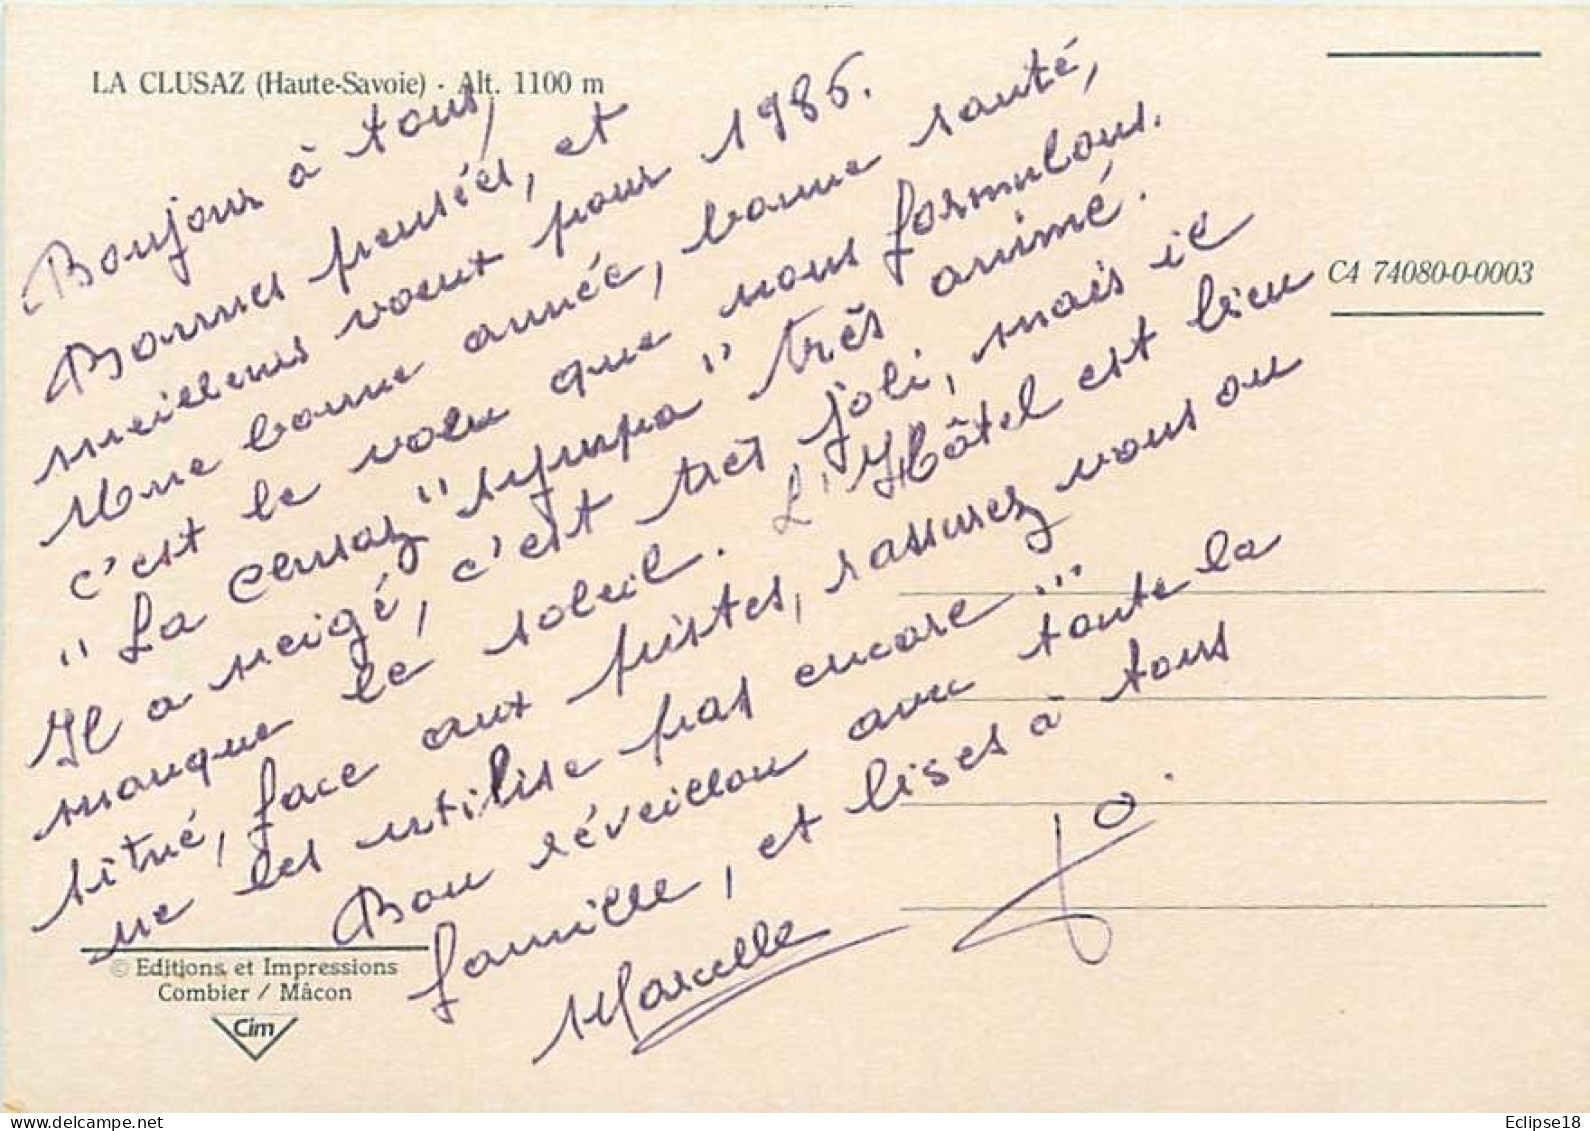 LA CLUSAZ (Haute-Savoie) - Alt. 1100 m
Bonjour à tous,
Bonnes pensées, et
meilleurs voeux pour 1986.
Une bonne année, bonne santé,
c'est le voeu que nous formulons.
"La Clusaz" sympa" très animé.
Il a neigé, c'est très joli, mais il
manque le soleil. L'Hôtel est bien
situé, face aux pistes, rassurez vous on
ne les utilise pas encore"...
Bon réveillon avec toute la
famille, et bises à tous
Marcelle Jo.
CA 74080-0-0003
© Editions et Impressions
Combier / Mâcon
Cim
Eclipse18